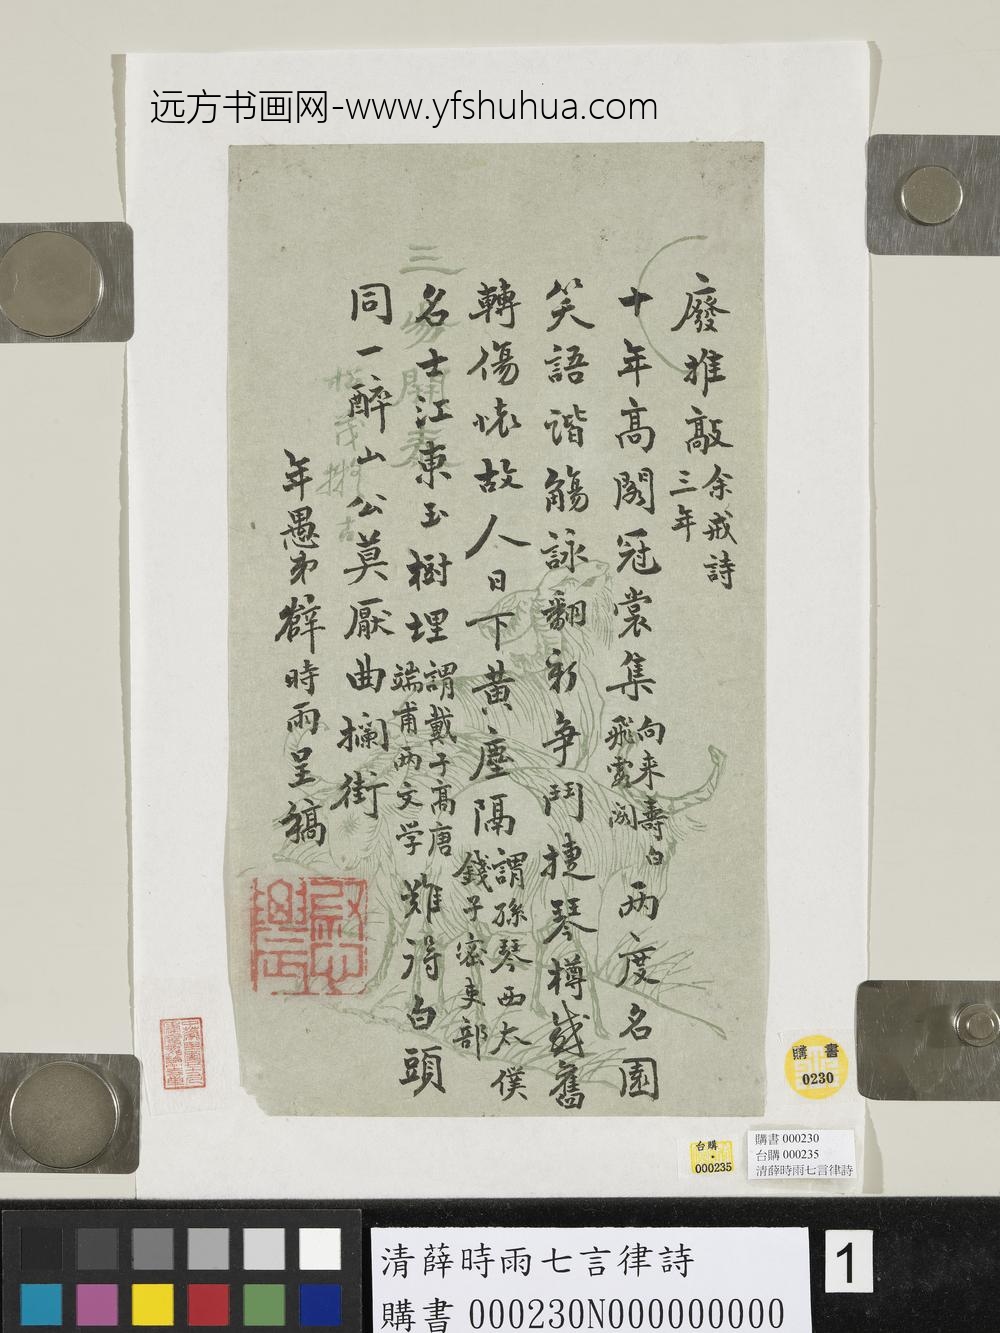 远方书画网-www.yfshuhua.com
廢推敲余戒詩三年
十年高閣冠裳集向来壽白飛雲閣兩度名園
笑語諧觴詠翻新争鬥捷琴樽感舊
轉傷懷故人日下黃塵隔謂孫琴西太僕錢子密吏部
名士江東玉樹埋謂戴子高唐端甫兩文学難得白頭
同一醉山公莫厭曲攔街
年愚弟薛時雨呈稿
三陽開泰
購書
0230
台購
000235
購書 000230
台購 000235
清薛時雨七言律詩
清薛時雨七言律詩
購書 000230N000000000
1